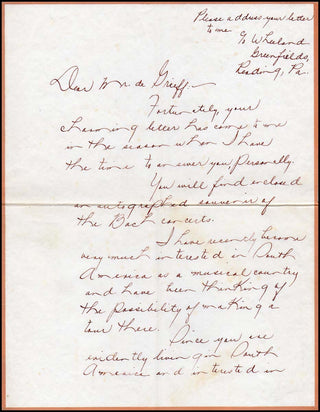 Please address your letter
to me
c/o Wheeland
Greenfields,
Reading, Pa.
Dear Mr. de Greiff,—
Fortunately, your
charming letter has come to me
in the season when I have
the time to answer you, personally.
You will find enclosed
an autographed souvenir of
the Bach concerts.
I have recently become
very much interested in South
America as a musical country
and have been thinking of
the possibility of making a
tour there.
Since you are
evidently living in South
America and interested in